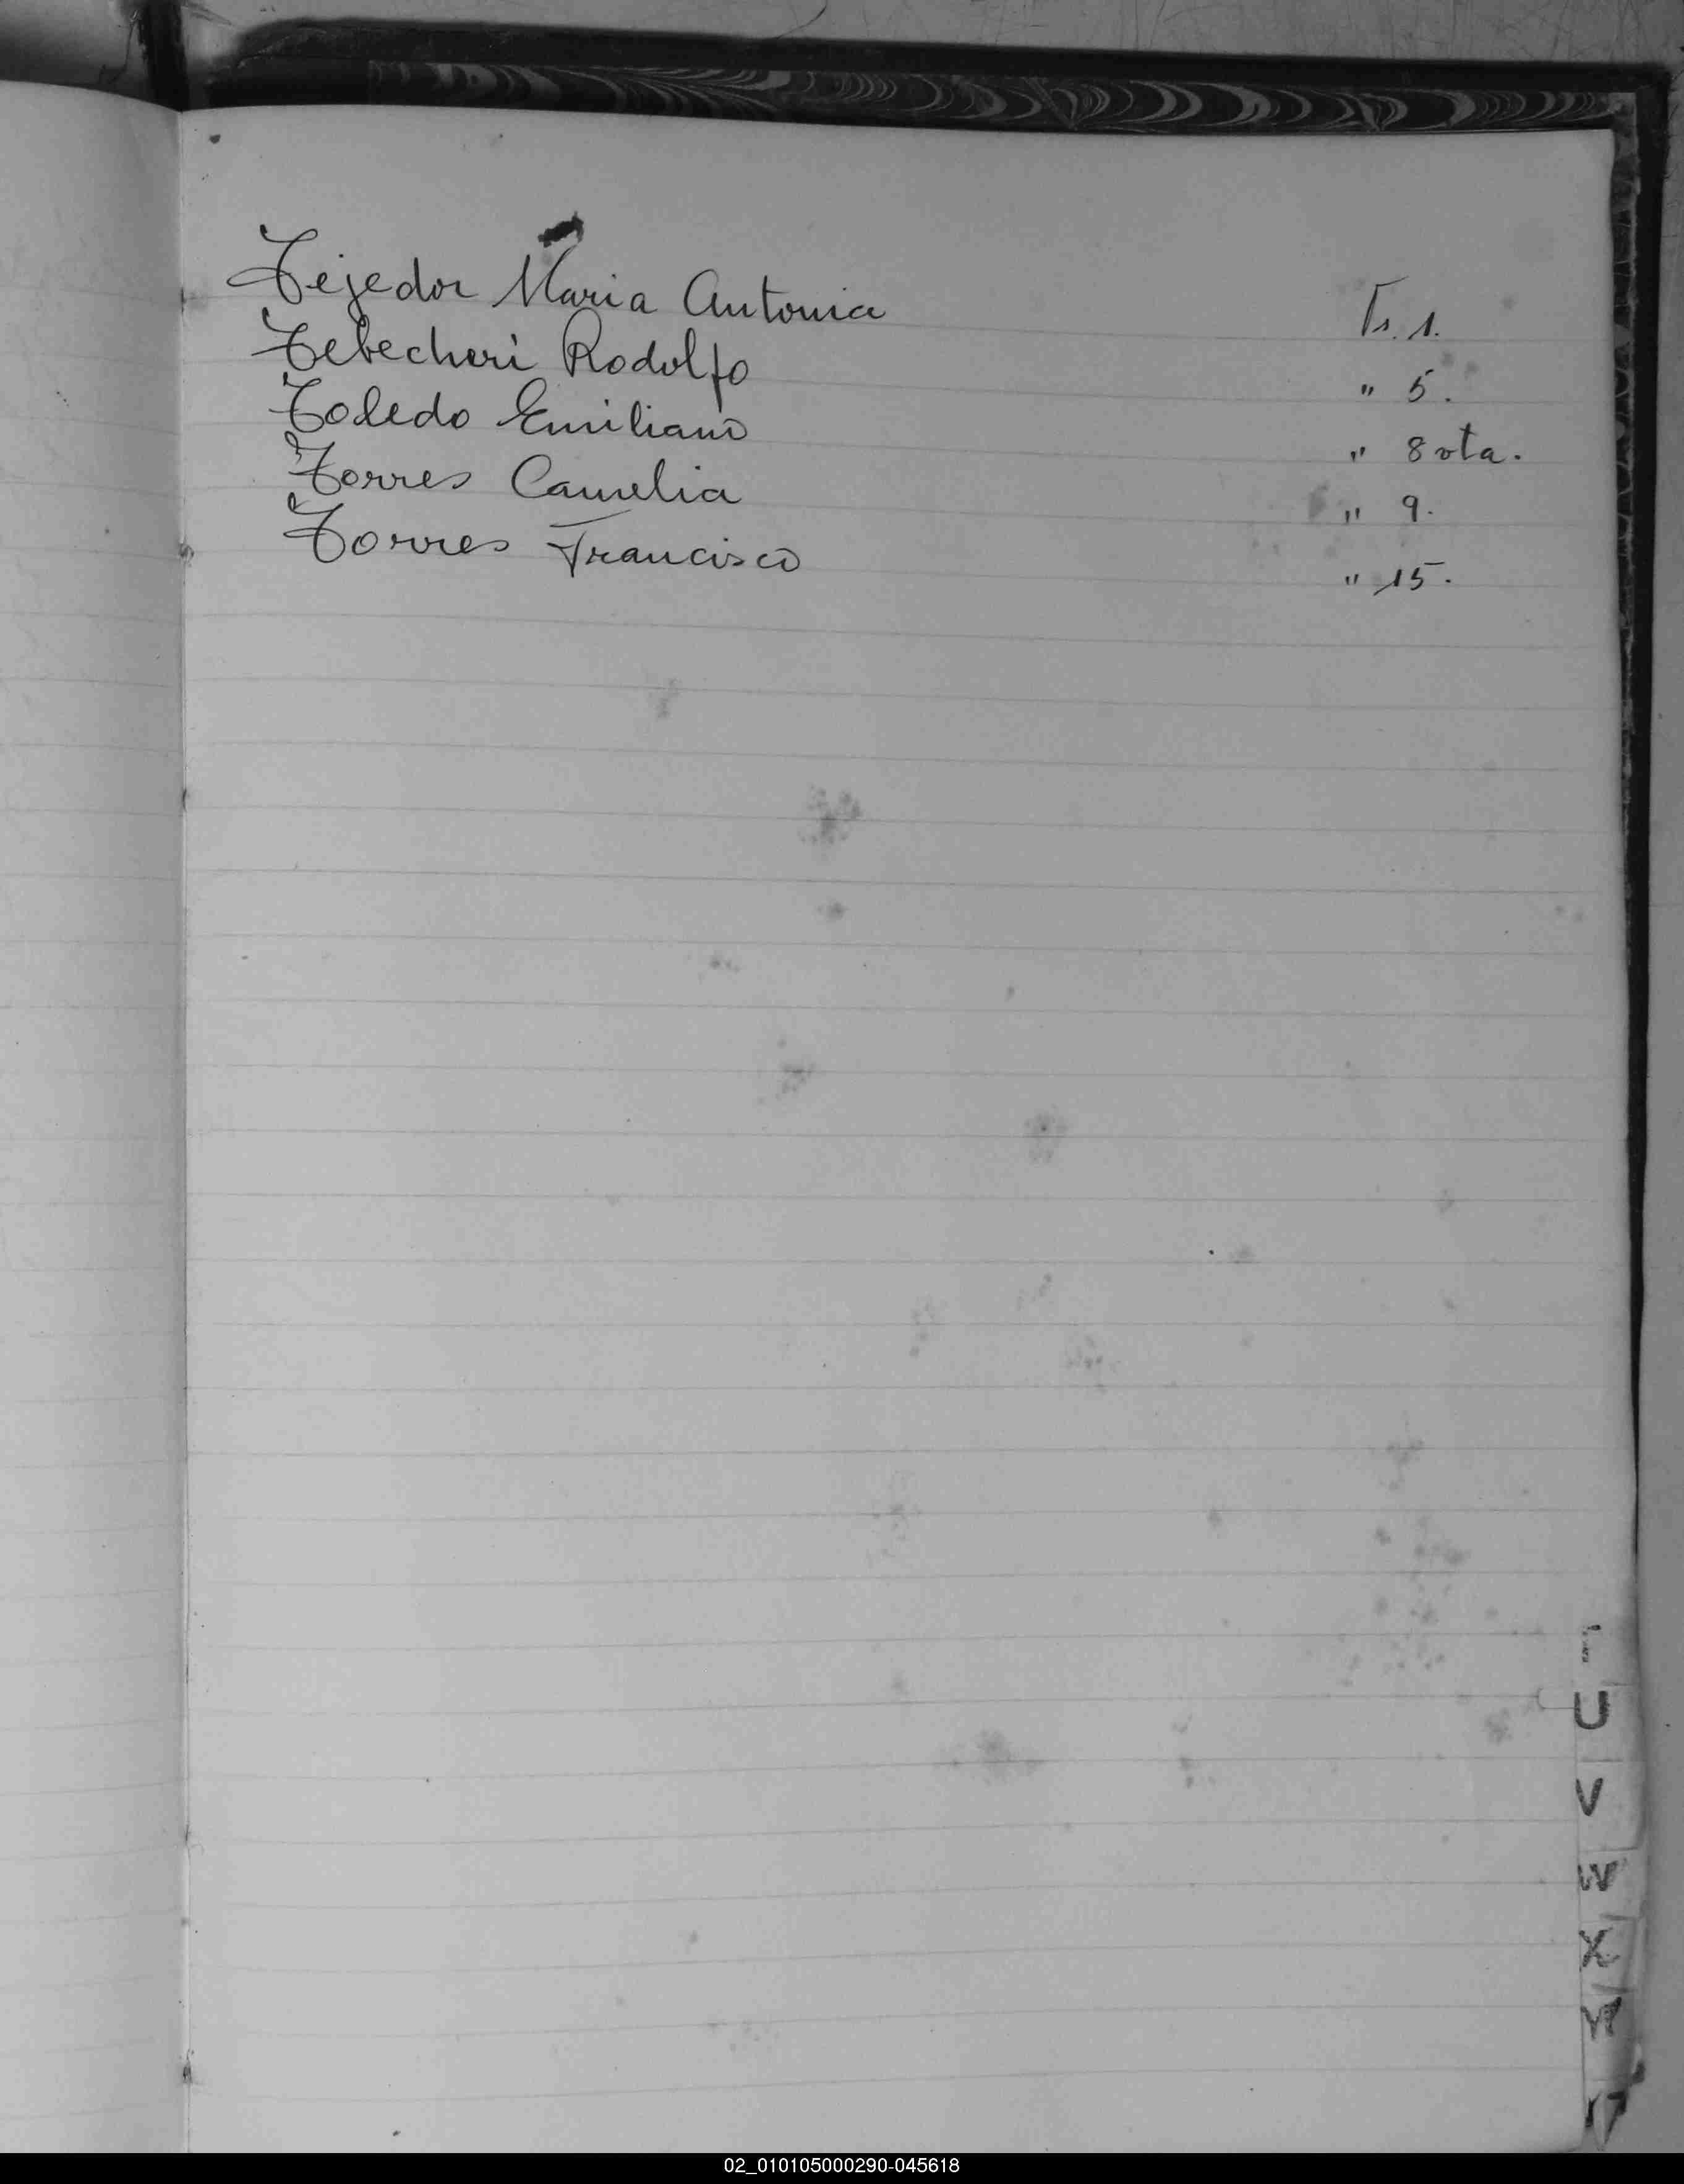 Tejedor Maria Antonia Fs. 1.
Tebecheri Rodolfo " 5.
Toledo Emiliano " 8 vta.
Torres Camelia " 9.
Torres Francisco " 15.
T
U
V
W
X
Y
02_010105000290-045618